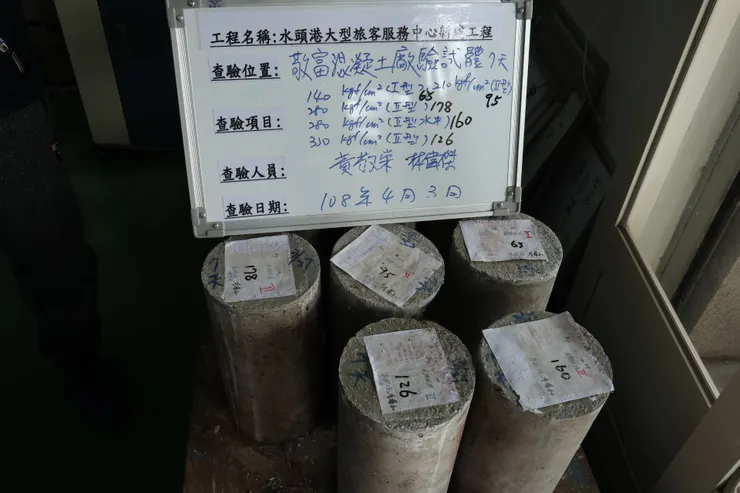 工程名稱:水頭港大型旅客服務中心新建工程
查驗位置:敬富混凝土廠驗試體 7天
140 kgf/cm² (II型) 65 210 kgf/cm² (II型) 95
280 kgf/cm² (II型) 178
查驗項目: 280 kgf/cm² (II型水中) 160
350 kgf/cm² (II型) 126
查驗人員: 黃敬崇 林偉傑
查驗日期: 108年4月3日
7天
178
II
95
II
65
II
126
II
160
II